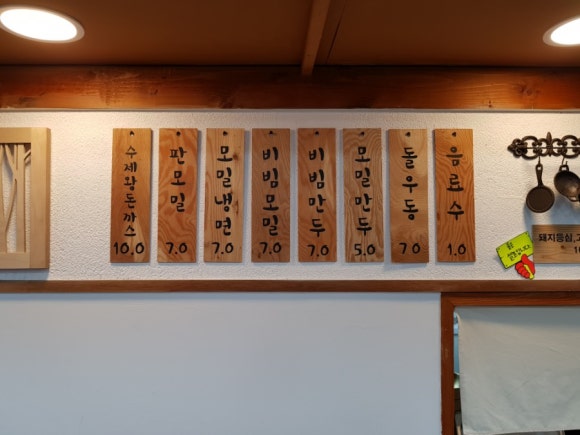 수제왕돈까스
10.0
판모밀
7.0
모밀냉면
7.0
비빔모밀
7.0
비빔만두
7.0
모밀만두
5.0
돌우동
7.0
음료수
1.0
돼지등심,고